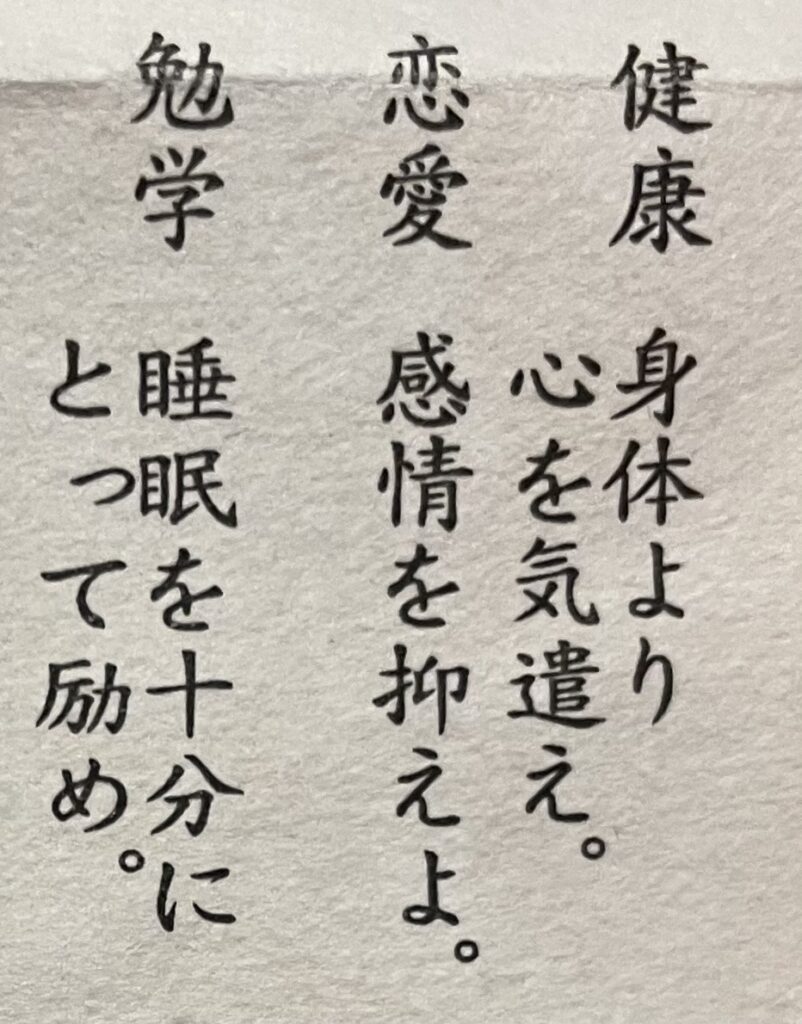 健康 身体より
心を気遣え。
恋愛 感情を抑えよ。
勉学 睡眠を十分に
とって励め。